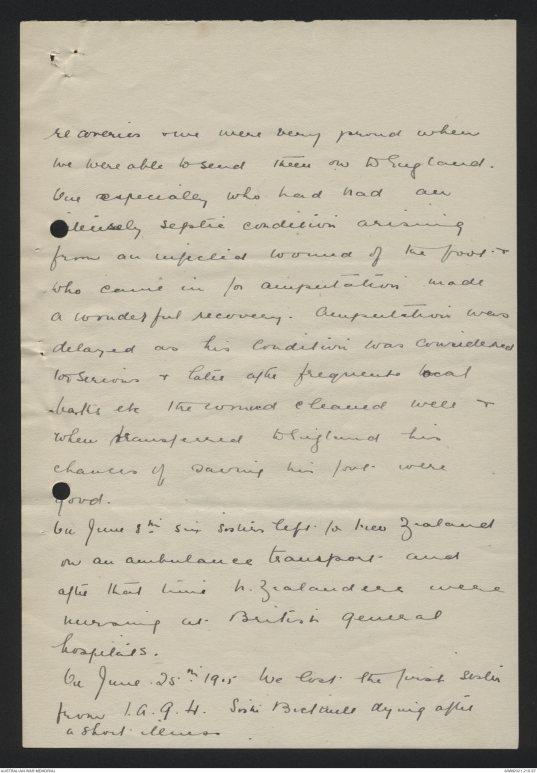 recoveries & we were very proud when
we were able to send them on to England.
One especially who had had an
intensely septic condition arising
from an infected wound of the foot &
who came in for amputation made
a wonderful recovery. Amputation was
delayed as his condition was considered
too serious & later after frequent local
baths etc the wound cleaned well &
when transferred to England his
chances of saving his foot were
good.
On June 8th six sisters left for New Zealand
on an ambulance transport and
after that time N. Zealanders were
nursing at British general
hospitals.
On June 25th 1915 We lost the first sister
from 1.A.G.H. Sister Bicknell dying after
a short illness
AUSTRALIAN WAR MEMORIAL